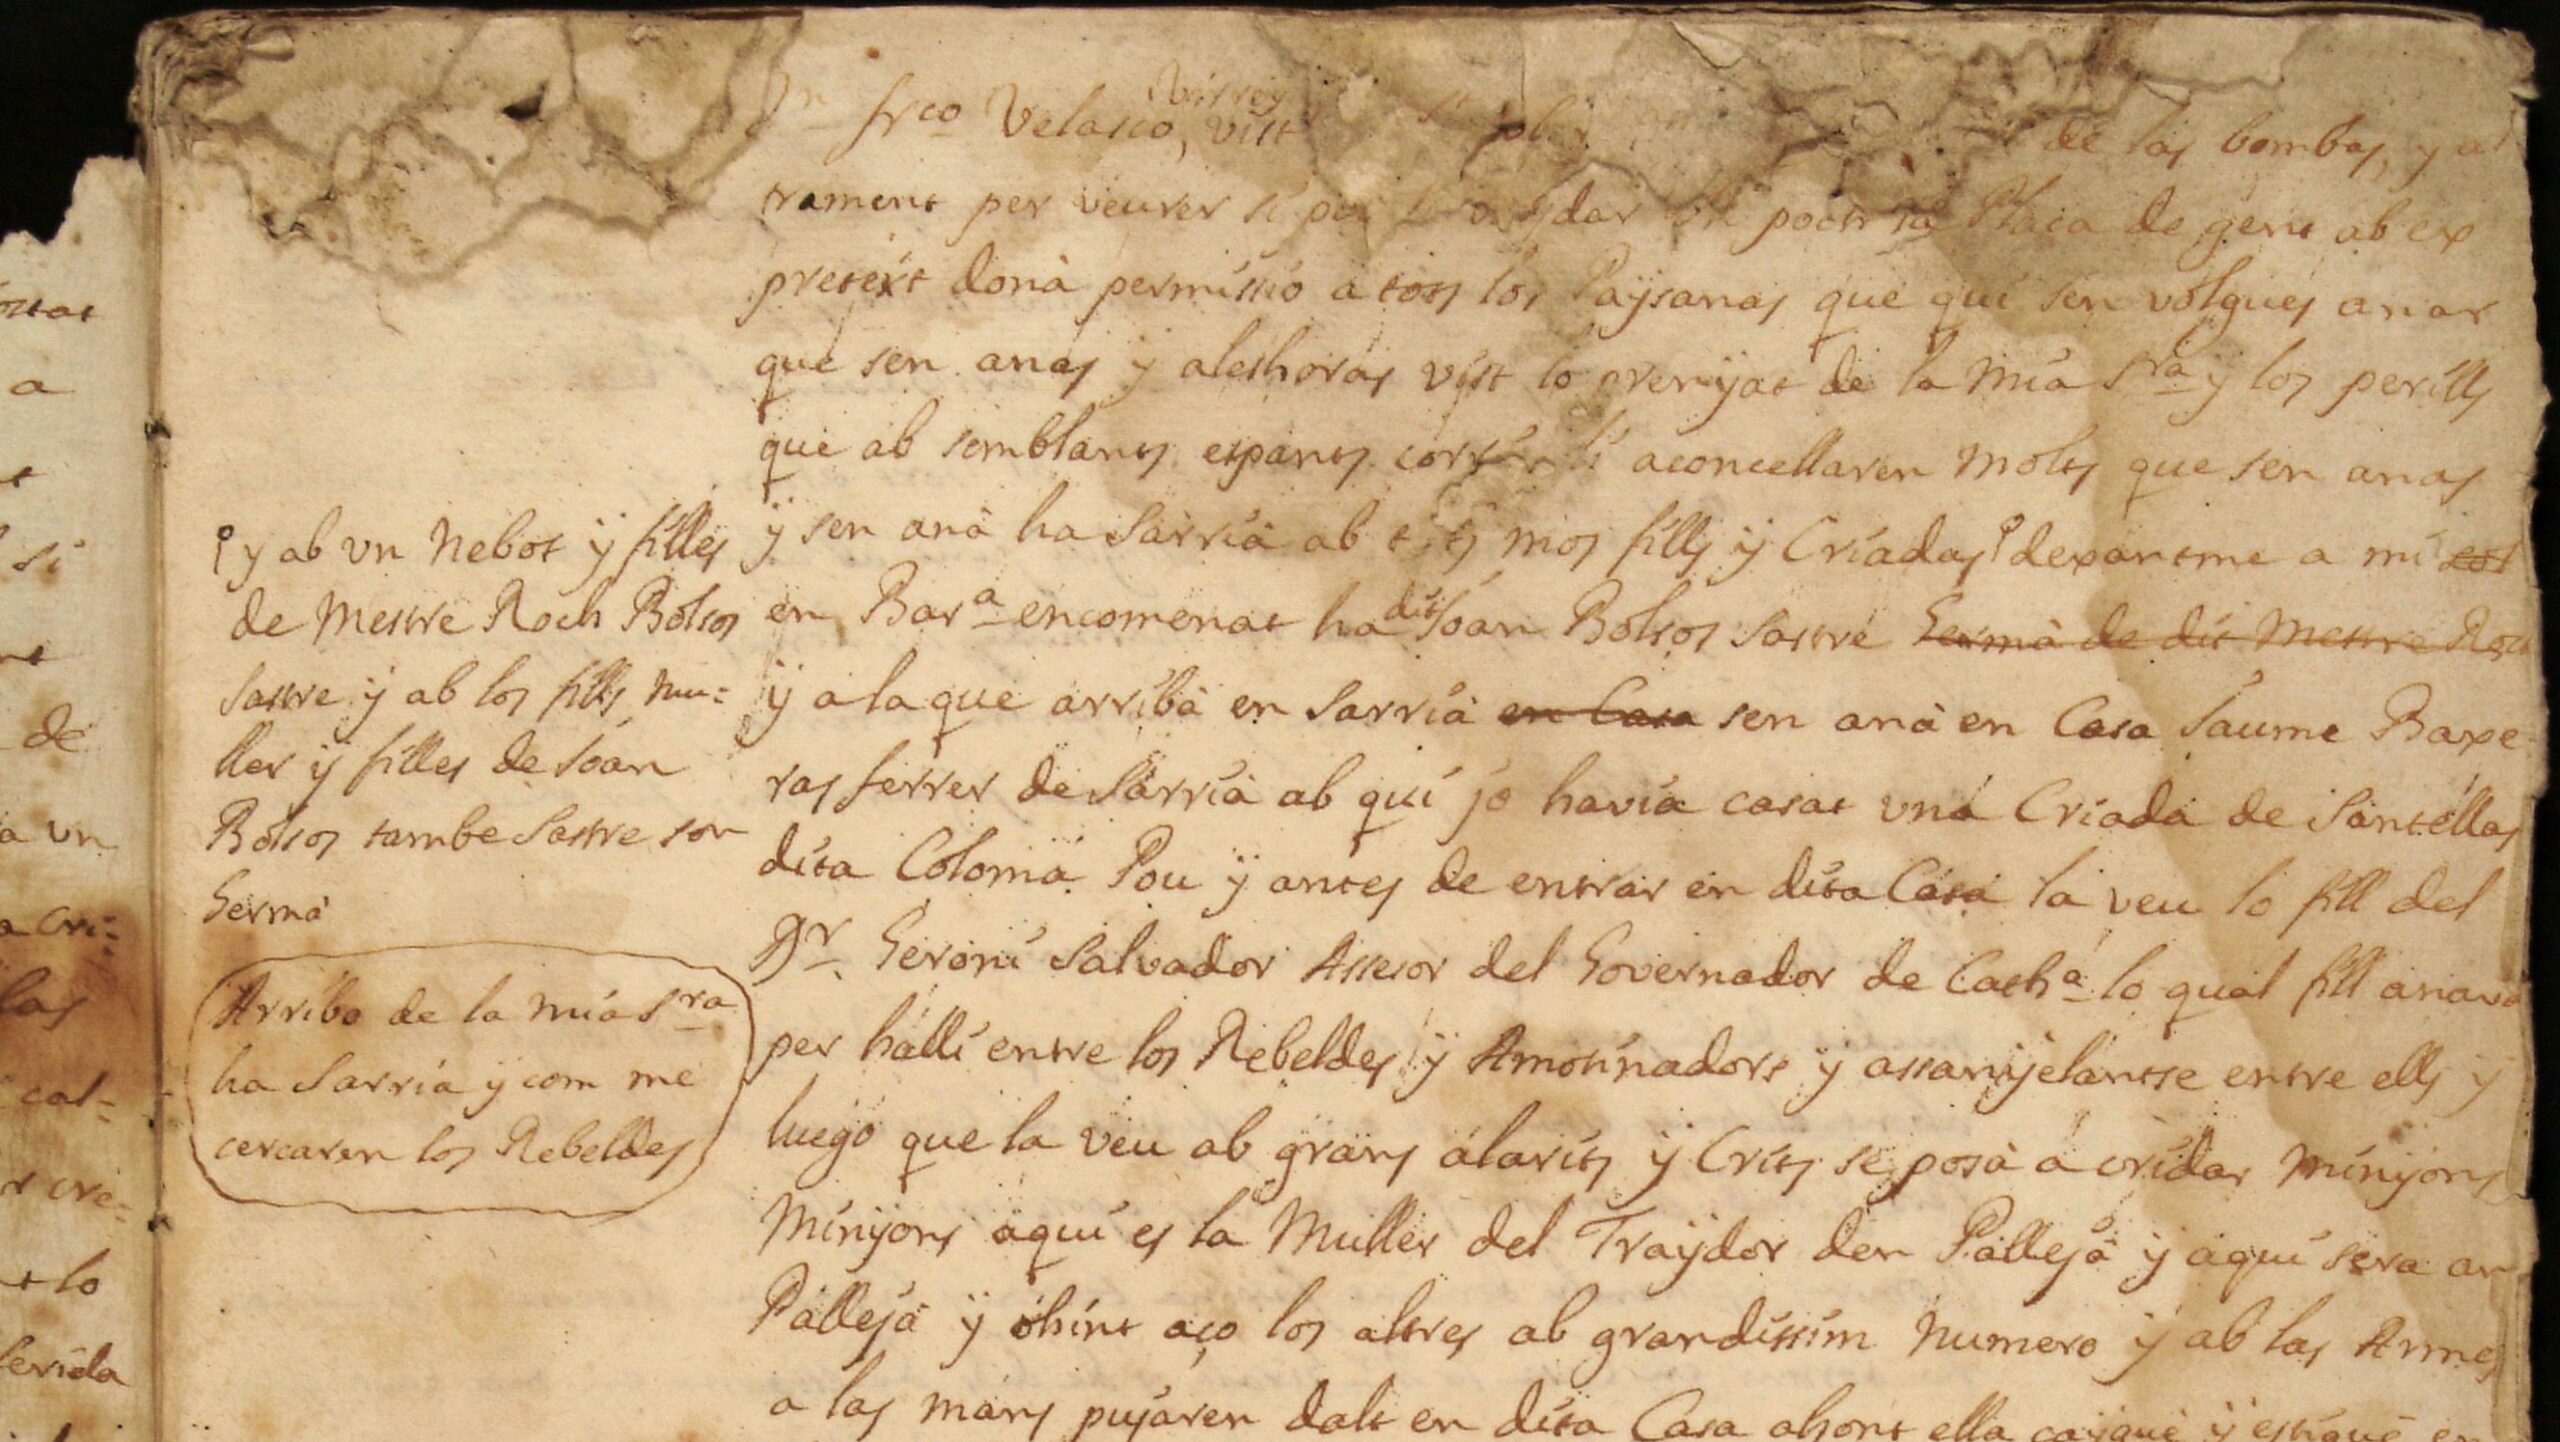 Dn frco Velasco, virrey vist de las bombas, y al
trament per veurer si podria Plaça de gent ab ex
pretext donà permissio a tots los Paysanas que qui sen volgues anar
que sen anas ÿ aleshoras vist lo prenÿat de la mia Sra ÿ los perills
que ab semblants espants corrian li aconcellaren molts que sen anas
ÿ sen anà ha Sarrià ab tots mos fills ÿ Criadas dexantme a mi sol
en Bara encomenat ha dit Joan Bolsos Sastre Germà de dit Mestre Roch
ÿ a la que arribà en Sarrià en Casa sen anà en Casa Jaume Baxe-
ras ferrer de Sarrià ab qui jo havia casat una Criada de Santellas
dita Coloma Pou ÿ antes de entrar en dita Casa la veu lo fill del
Dr Geroni Salvador Assesor del Governador de Catha lo qual fill anava
per halli entre los Rebeldes ÿ Amotinadors ÿ assanÿelantse entre ells ÿ
luego que la veu ab grans alarits ÿ Crits se posà à cridar Minÿons
Minÿons aqui es la Muller del Traÿdor den Pallejà ÿ aqui sera an
Pallejà ÿ ohint aço los altres ab grandissim numero ÿ ab las Armes
a las mans pujaren dalt en dita Casa ahont ella caÿgue ÿ estigué en
y ab un Nebot ÿ filles
de Mestre Roch Bolsos
Sastre ÿ ab los fills mu-
ller ÿ filles de Joan
Bolsos tambe Sastre son
Germà
Arribo de la mia Sra
ha Sarria y com me
cercaren los Rebeldes
a
si
de
a un
a Cri-
las
cal-
r cre-
t lo
ferida